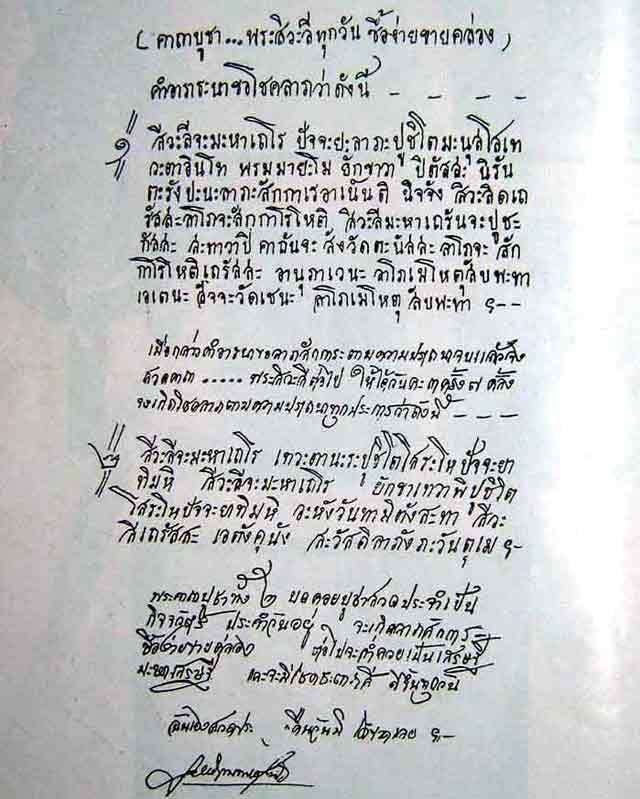 (คาถาบูชา...พระสิวะลีทุกวัน ซื้อง่ายขายคล่อง)
คำอาราธนาขอโชคลาภว่าดังนี้ - - - -
๑ สีวะลีจะมะหาเถโร ปัจจะยะลาภะปูชิโตมะนุสโสเท
วะตาอินโท พรมมายะโม ยักขาวา ปิตัสสะ นิรัน
ตะรังปะนะลาภะสักกาเรอาเน็นติ นิจจัง สิวะลิดเถ
รัสสะลาโภจะสักกาโรโหติ สีวะลีมะหาเถรันจะปูชะ
กัสสะ สะทาวาปิ คาถันจะ สังวัดตะนิสสะ ลาโภจะ สัก
กาโรโหติเถรัสสะ อานุภาเวนะ ลาโภเมโหตุสัปพะทา
เอเตนะ สัจจะวัดเชนะ ลาโภเมโหตุ สัปพะทา ๚--
เมื่อกล่าวคำอาราธนาขอลาภสักการะตามความปรารถนาจบแล้วจึง
สวดคาถา..... พระสิวะลีต่อไป ให้ได้วันละ ๓ ครั้ง ๗ ครั้ง
จะเกิดโชคลาภตามความปรารถนาทุกประการว่าดังนี้ - - - -
๒ สีวะลีจะมะหาเถโร เทวะตานะระปูชิโตโสระโหปัจจะยา
ทิมหิ สีวะลีจะมะหาเถโร ยักขาเทวาพิปูชิโต
โสระโหปัจจะยาทิมหิ อะหังวันทามิตังสะทา สีวะ
ลีเถรัสสะ เอตังคุนัง สะวัสดิลาภังภะวันตุเม ๚-
พระคาถาบูชาทั้ง ๒ บทคอยบูชาสวดประจำเป็น
กิจวัตร ประจำวันอยู่ จะเกิดลาภสักการะ
ซื้อง่ายขายคล่อง ต่อไปจะร่ำรวยเป็นเสรษฐี
มะหาเสรษฐี และจะมีโชคชะตาดี ดีขึ้นทุกวัน